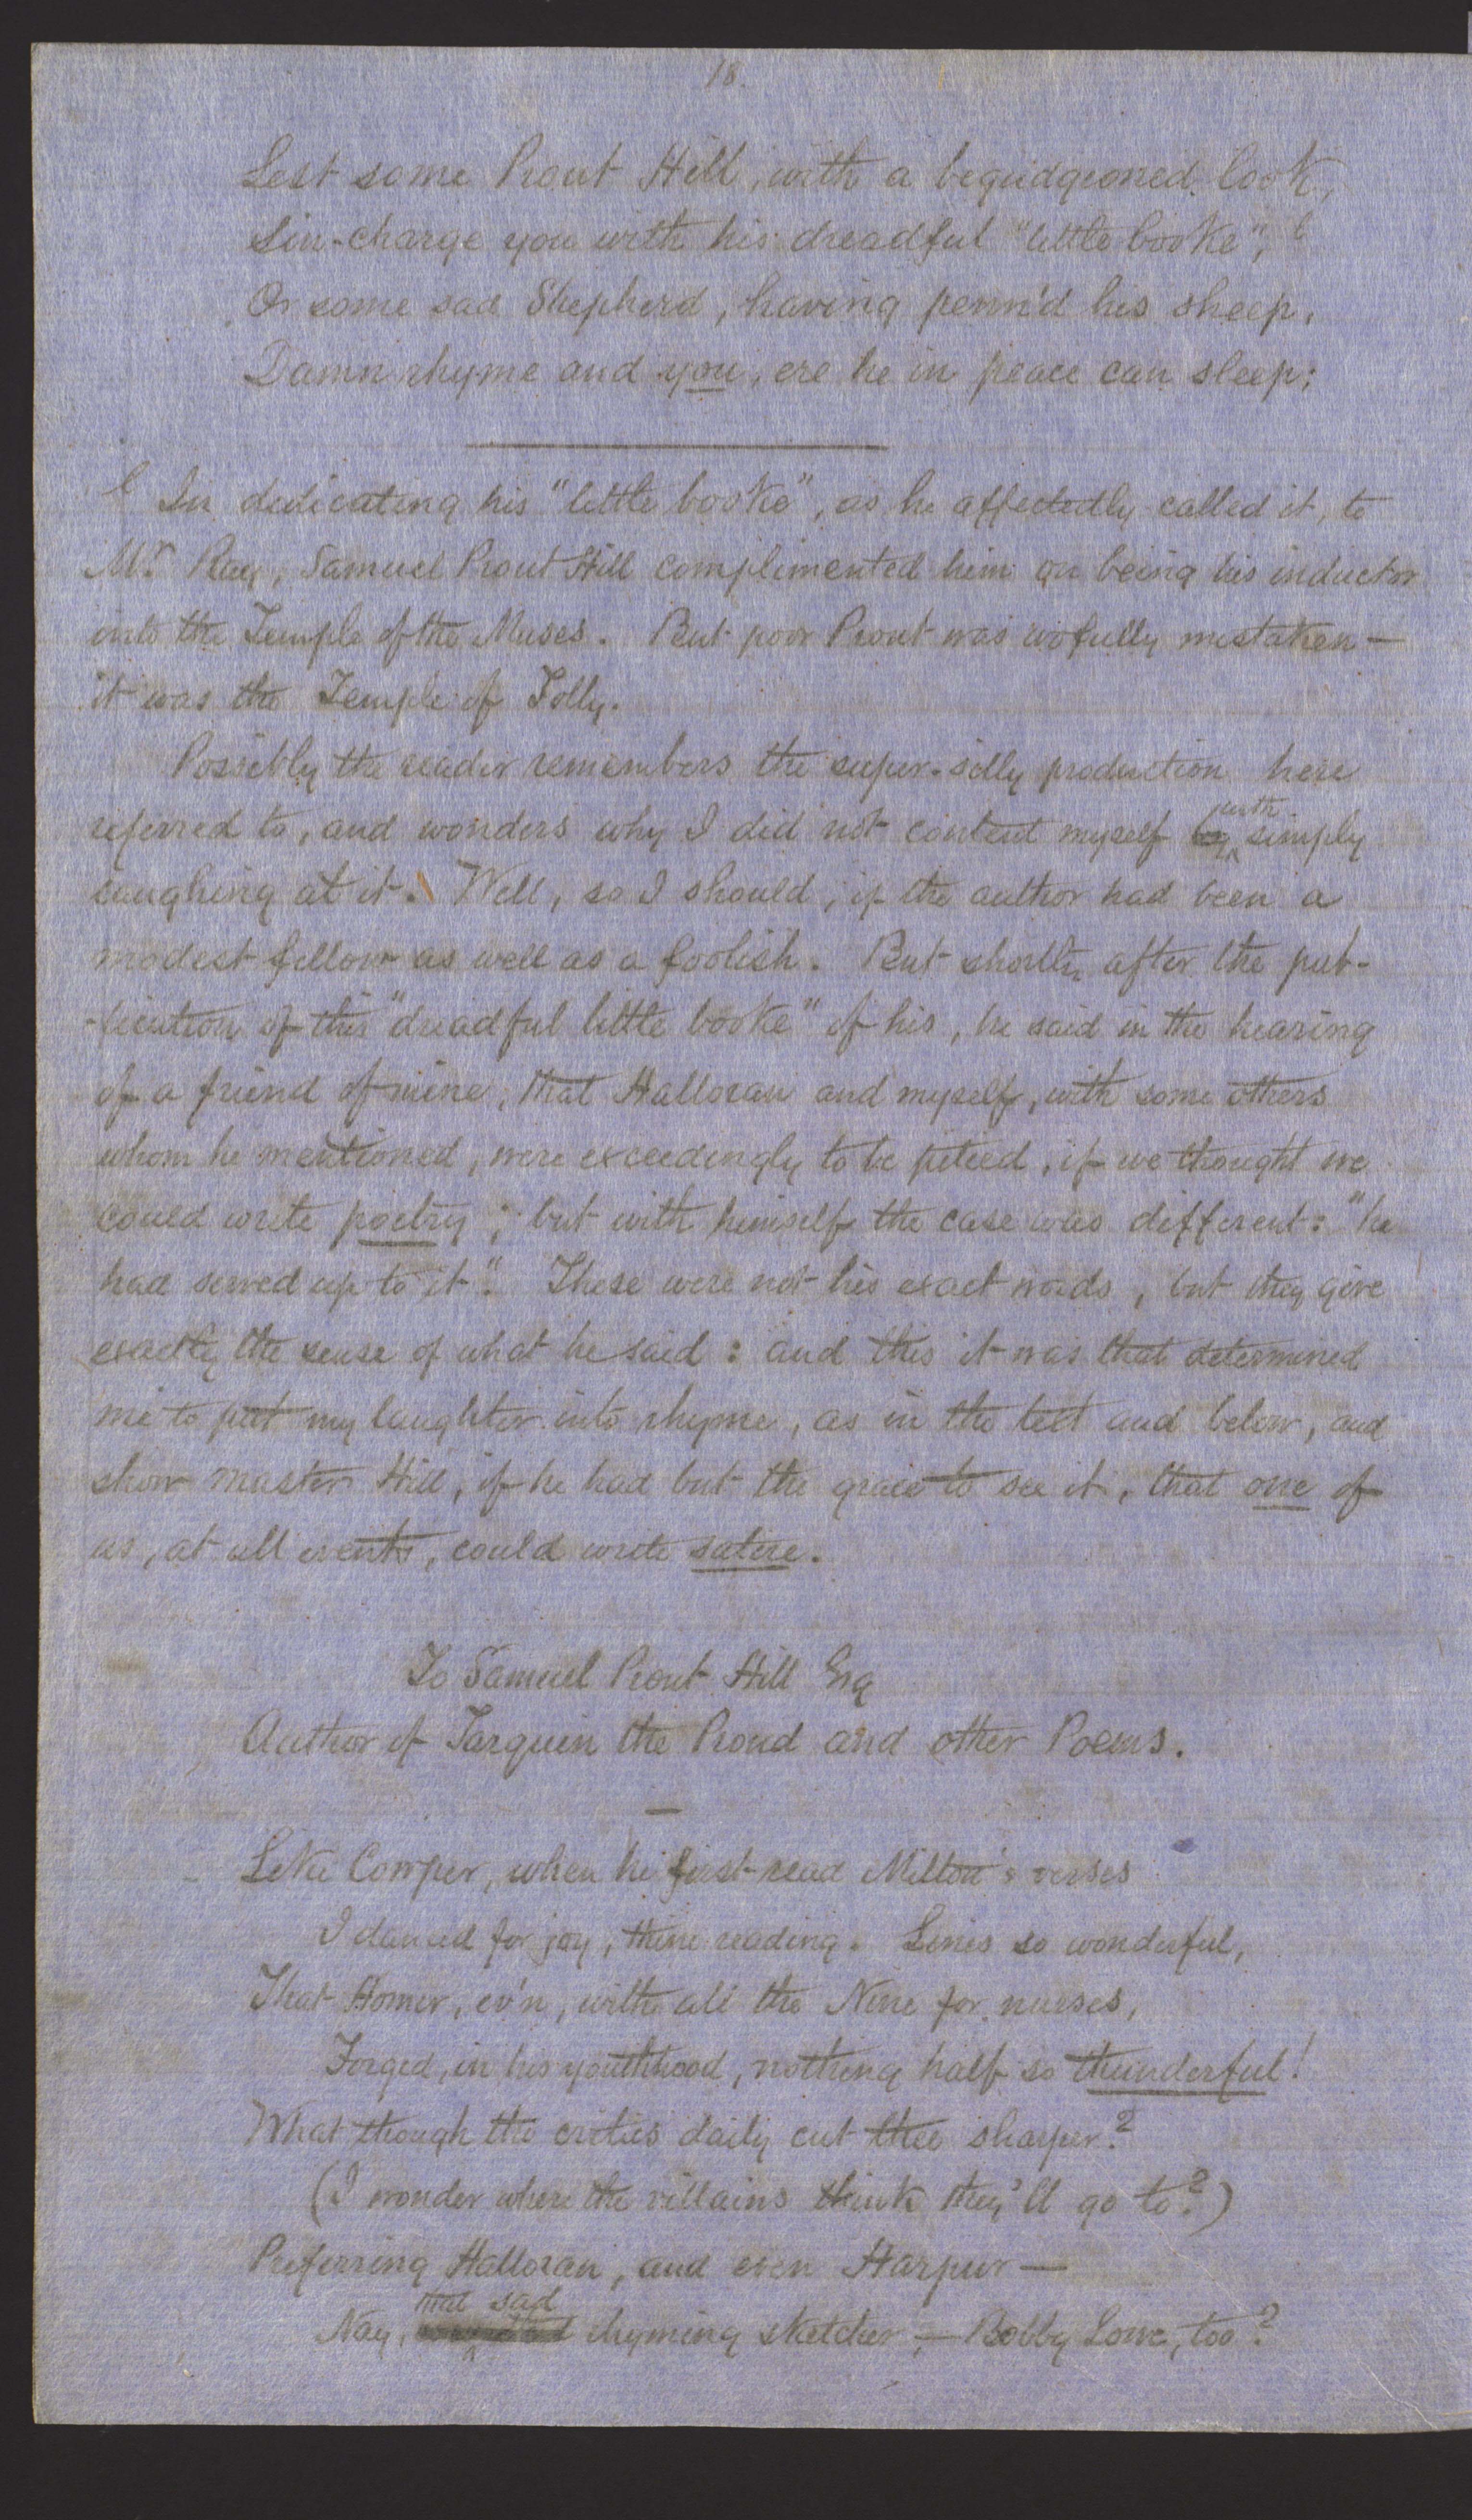 18.
Lest some Prout Hill, with a begudgeoned look,
Sin-charge you with his dreadful "little booke",
Or some sad Shepherd, having penn'd his sheep,
Damn rhyme and you, ere he in peace can sleep;
In dedicating his "little booke", as he affectedly called it, to
Mr. Rae, Samuel Prout Hill complimented him on being his inductor
into the Temple of the Muses. But poor Prout was wofully mistaken —
it was the Temple of Folly.
Possibly the reader remembers the super-silly production here
referred to, and wonders why I did not content myself by with simply
laughing at it. Well, so I should, if the author had been a
modest fellow as well as a foolish. But shortly after the pub-
-lication of this "dreadful little booke" of his, he said in the hearing
of a friend of mine, that Halloran and myself, with some others
whom he mentioned, were exceedingly to be pitied, if we thought we
could write poetry; but with himself the case was different: "he
had served up to it". These were not his exact words, but they give
exactly the sense of what he said: and this it was that determined
me to put my laughter into rhyme, as in the text and below, and
show master Hill, if he had but the grace to see it, that one of
us, at all events, could write satire.
To Samuel Prout Hill Esq
Author of Tarquin the Proud and other Poems.
—
Like Cowper, when he first read Milton's verses
I danced for joy, thine reading. Lines so wonderful,
That Homer, ev'n, with all the Nine for nurses,
Forged, in his youthhood, nothing half so thunderful!
What though the critics daily cut thee sharper?
(I wonder where the villains think they'll go to?)
Preferring Halloran, and even Harpur —
Nay, that sad rhyming sketcher, — Bobby Lowe, too?